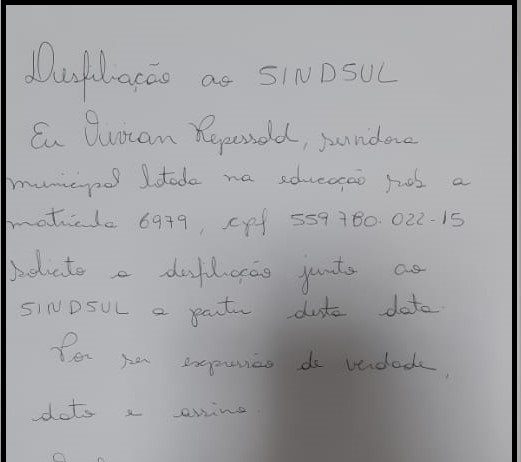 Desfiliação ao SINDSUL
Eu Vivian Repessold, servidora
municipal lotada na educação sob a
matrícula 6979, cpf 559 780.022-15
solicito a desfiliação junto ao
SINDSUL a partir desta data.
Por ser expressão de verdade,
dato e assino.